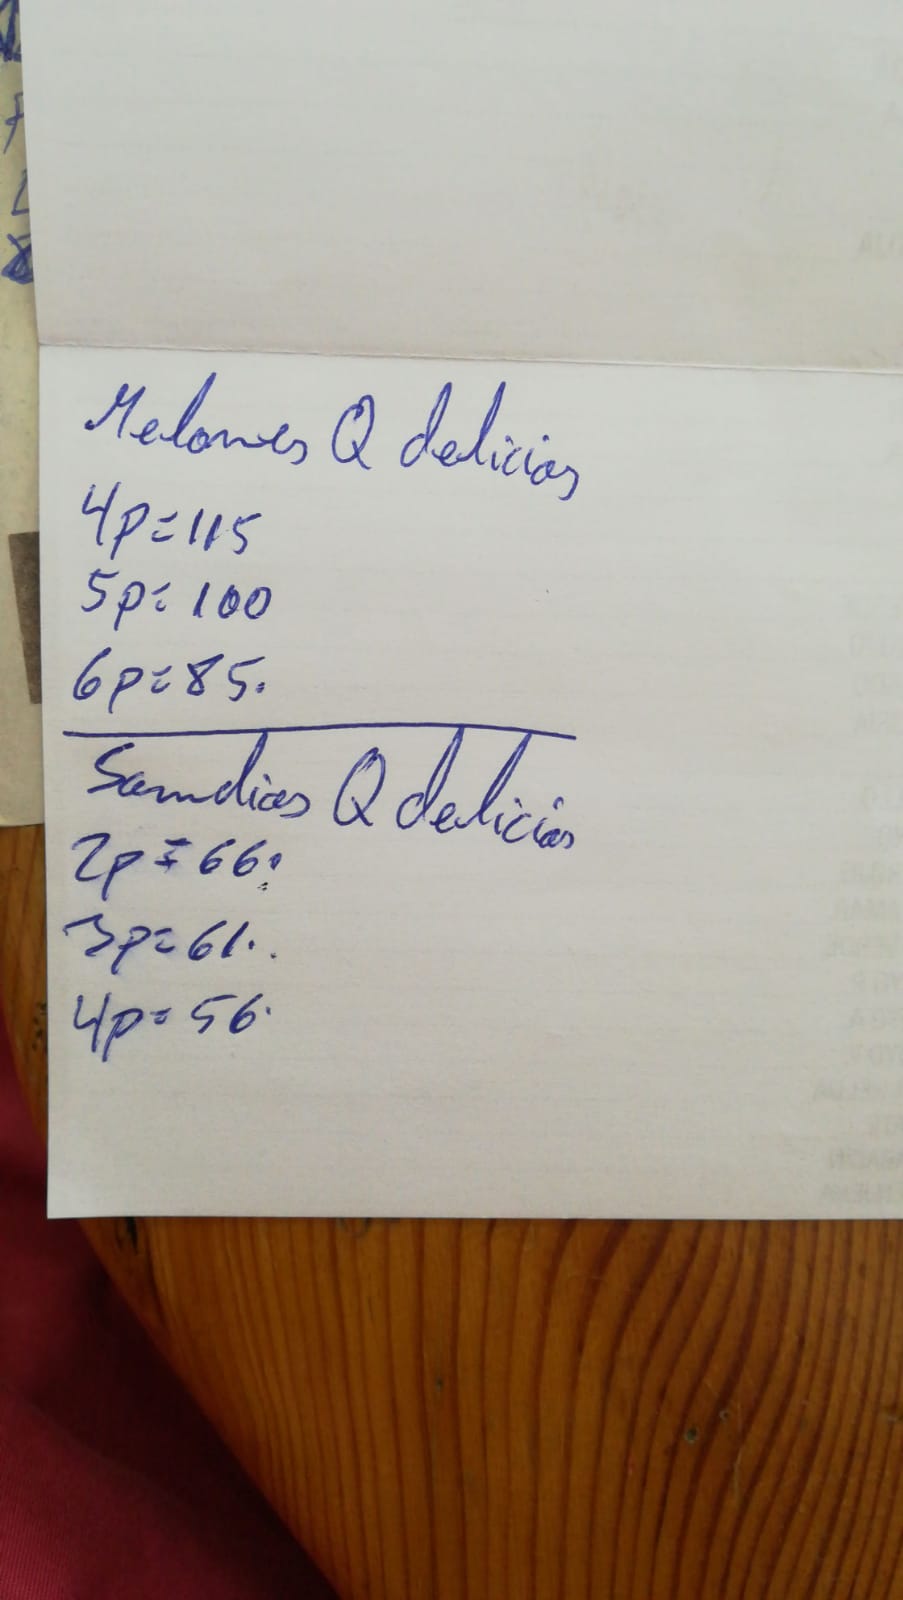 Melones Q delicias
4p=115
5p=100
6p=85.
Sandias Q delicias
2p=66.
3p=61.
4p=56.